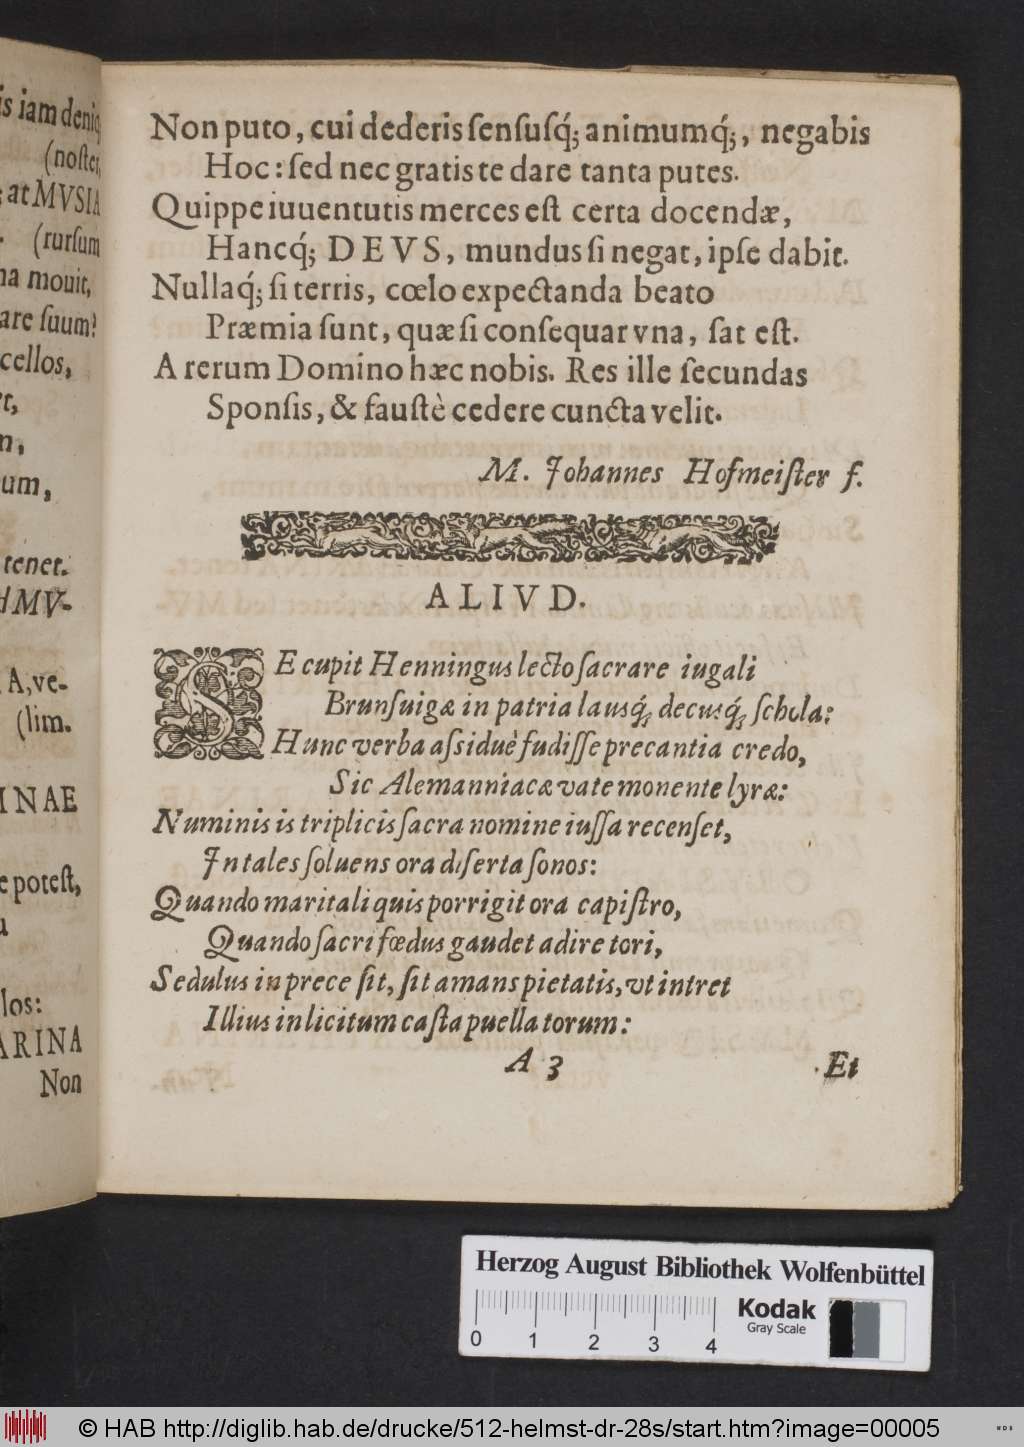 is iam deniq
(noſter,
at MVSIA
(rurſum
na mouit,
are ſuum?
cellos,
um,
tenet.
MV-
A, ve-
(lim.
INAE
e poteſt,
los:
ARINA
Non
Non puto, cui dederis ſenſuſq́; animumq́;, negabis
Hoc: ſed nec gratis te dare tanta putes.
Quippe iuuentutis merces eſt certa docendæ,
Hancq́; DEVS, mundus ſi negat, ipſe dabit.
Nullaq́; ſi terris, cœlo expectanda beato
Præmia ſunt, quæ ſi conſequar vna, ſat eſt.
A rerum Domino hæc nobis. Res ille ſecundas
Sponſis, & fauſtè cedere cuncta velit.
M. Johannes Hofmeiſter f.
ALIVD.
SE cupit Henningus lecto ſacrare iugali
Brunſuigæ in patria lausq́; decusq́; ſchola:
Hunc verba aſsiduè fudiſſe precantia credo,
Sic Alemanniacæ vate monente lyræ:
Numinis is triplicis ſacra nomine iuſſa recenſet,
Jn tales ſoluens ora diſerta ſonos:
Quando maritali quis porrigit ora capiſtro,
Quando ſacri fœdus gaudet adire tori,
Sedulus in prece ſit, ſit amans pietatis, vt intret
Illius in licitum caſta puella torum:
A 3
Et
Herzog August Bibliothek Wolfenbüttel
Kodak
Gray Scale
0 1 2 3 4
© HAB http://diglib.hab.de/drucke/512-helmst-dr-28s/start.htm?image=00005